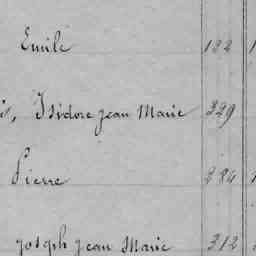 Emile 122
Isidore Jean Marie 329
Pierre 284
Joseph Jean Marie 312